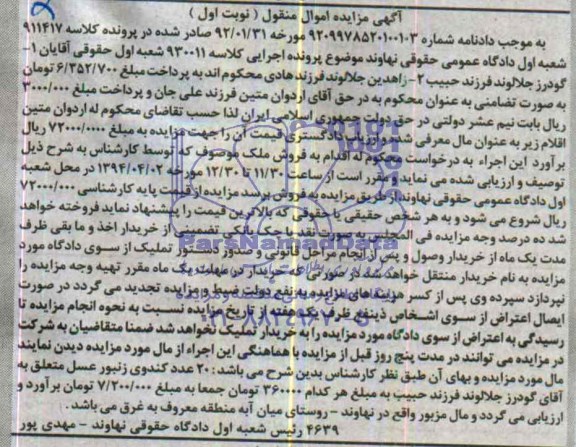 آگهی مزایده اموال منقول ( نوبت اول )
به موجب دادنامه شماره ۹۲۰۹۹۷۸۵۲۰۱۰۰۱۰۳ مورخه ۹۲/۰۱/۳۱ صادر شده در پرونده کلاسه ۹۱۱۴۱۷
شعبه اول دادگاه عمومی حقوقی نهاوند موضوع پرونده اجرایی کلاسه ۹۳۰۰۱۱ شعبه اول حقوقی آقایان ۱-
گودرز جلالوند فرزند حبیب ۲- زاهدین جلالوند فرزند هادی محکوم اند به پرداخت مبلغ ۶/۳۵۲/۷۰۰ تومان
به صورت تضامنی به عنوان محکوم به در حق آقای اردوان متین فرزند علی جان و پرداخت مبلغ ۳۰۰۰/۰۰۰
ریال بابت نیم عشر دولتی در حق دولت جمهوری اسلامی ایران لذا حسب تقاضای محکوم له اردوان متین
اقلام زیر به عنوان مال معرفی شده و ارزیاب دادگستری قیمت آن را جهت مزایده به مبلغ ۷۲۰۰۰/۰۰۰ ریال
برآورد این اجراء به درخواست محکوم له اقدام به فروش ملک موصوف که توسط کارشناس به شرح ذیل
توصیف و ارزیابی شده می نماید و مقرر است از ساعت ۱۱/۳۰ تا ۱۲/۳۰ مورخه ۱۳۹۴/۰۴/۰۲ در محل شعبه
اول دادگاه عمومی حقوقی نهاوند از طریق مزایده به فروش برسد مزایده از قیمت پایه کارشناسی ۷۲۰۰۰/۰۰۰
ریال شروع می شود و به هر شخص حقیقی یا حقوقی که بالاترین قیمت را پیشنهاد نماید فروخته خواهد
شد ده درصد وجه مزایده فی المجلس به صورت نقد یا چک بانکی تضمینی از خریدار اخذ و ما بقی ظرف
مدت یک ماه از خریدار وصول و پس از انجام مراحل قانونی و صدور دستور تملیک از سوی دادگاه مورد
مزایده به نام خریدار منتقل خواهد شد در صورتی که خریدار در مهلت یک ماه مقرر تهیه وجه مزایده را
نپردازد سپرده وی پس از کسر هزینه های مزایده به نفع دولت ضبط و مزایده تجدید می گردد در صورت
ایصال اعتراض از سوی اشخاص ذینفع ظرف یک هفته از تاریخ مزایده نسبت به نحوه انجام مزایده تا
رسیدگی به اعتراض از سوی دادگاه مورد مزایده را به خریدار تملیک نخواهد شد ضمنا متقاضیان به شرکت
در مزایده می توانند در مدت پنج روز قبل از مزایده با هماهنگی این اجراء از مال مورد مزایده دیدن نمایند
مال مورد مزایده و بهای آن طبق نظر کارشناس بدین شرح می باشد: ۲۰ عدد کندوی زنبور عسل متعلق به
آقای گودرز جلالوند فرزند حبیب به مبلغ هر کدام ۳۶۰۰۰۰ تومان جمعا به مبلغ ۷/۲۰۰/۰۰۰ تومان برآورد و
ارزیابی می گردد و مال مزبور واقع در نهاوند - روستای میان آبه منطقه معروف به غرق می باشد.
۴۶۳۹ رئیس شعبه اول دادگاه حقوقی نهاوند - مهدی پور
ParsNamadData